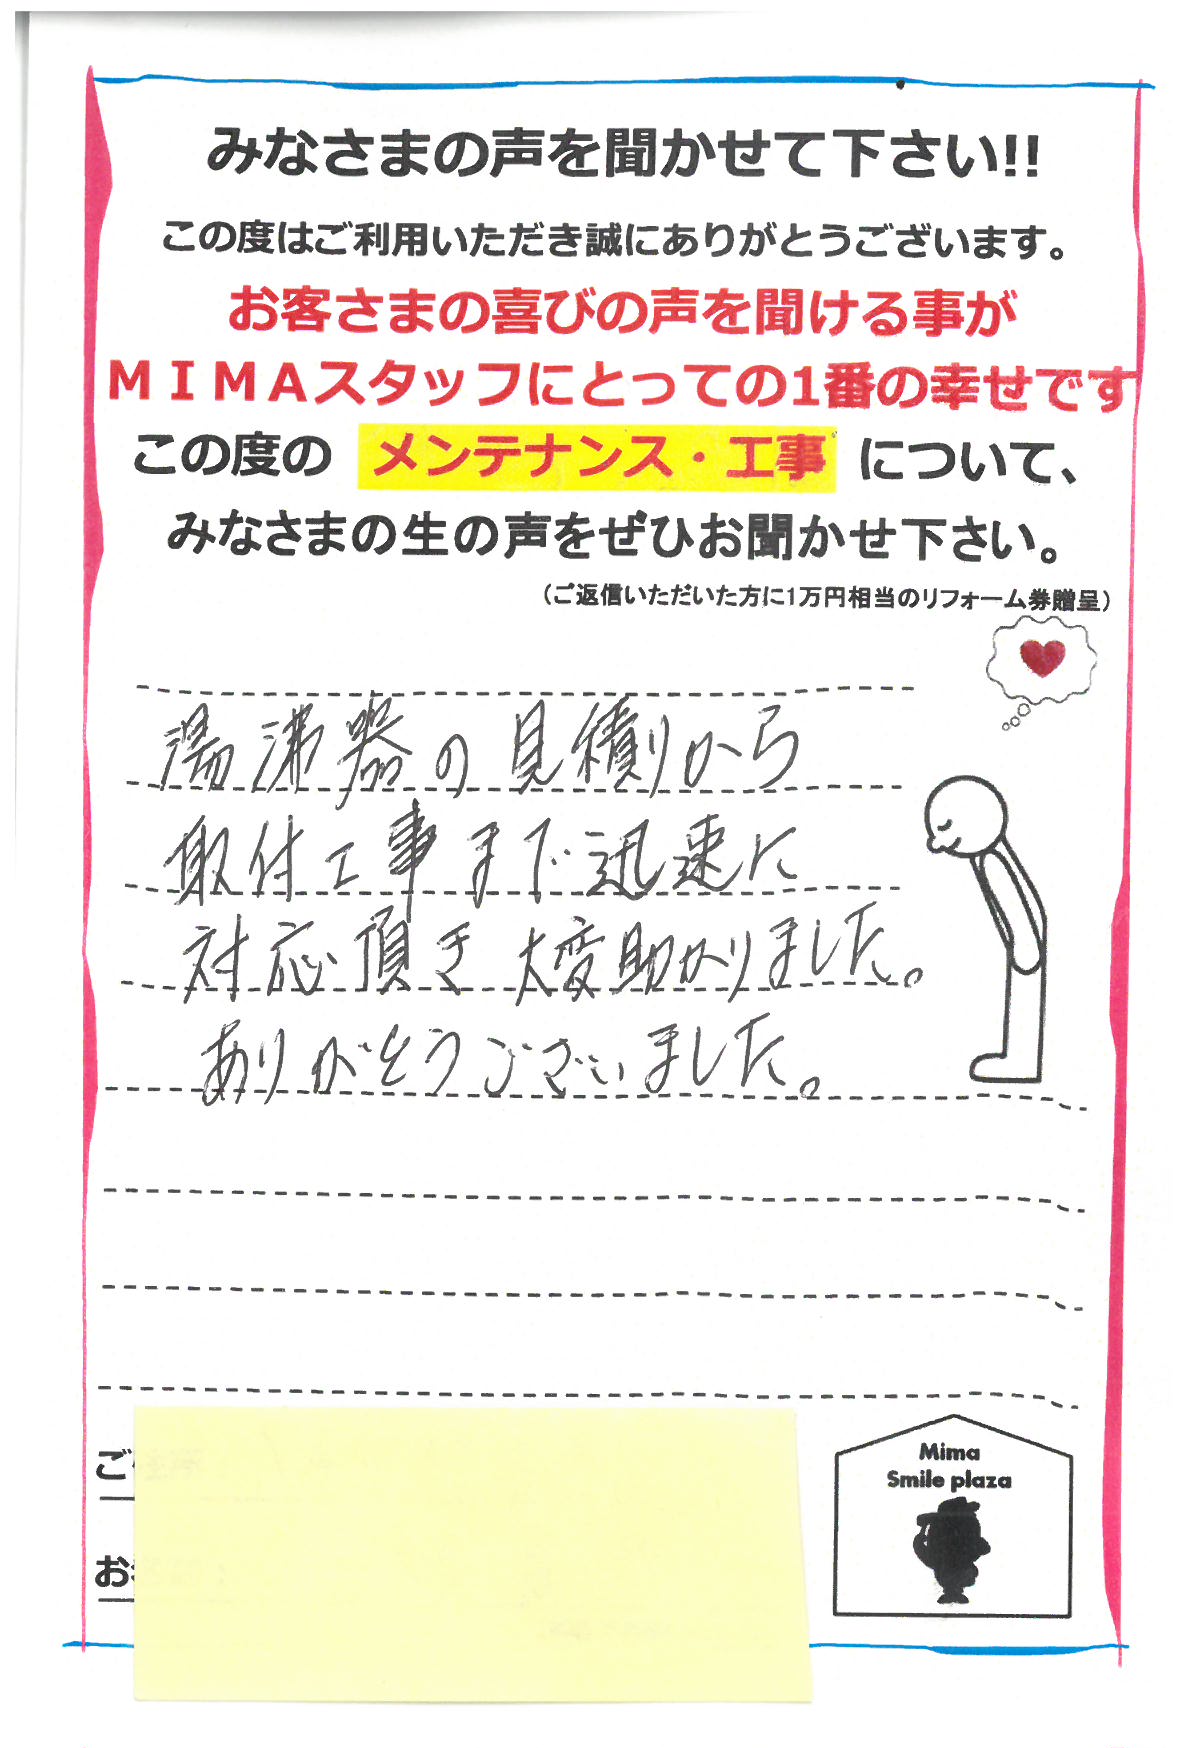 みなさまの声を聞かせて下さい!!
この度はご利用いただき誠にありがとうございます。
お客さまの喜びの声を聞ける事が
MIMAスタッフにとっての1番の幸せです
この度の メンテナンス・工事 について、
みなさまの生の声をぜひお聞かせ下さい。
(ご返信いただいた方に1万円相当のリフォーム券贈呈)
湯沸器の見積りから
取付工事まで迅速に
対応頂き大変助かりました。
ありがとうございました。
ご
お
Mima
Smile plaza